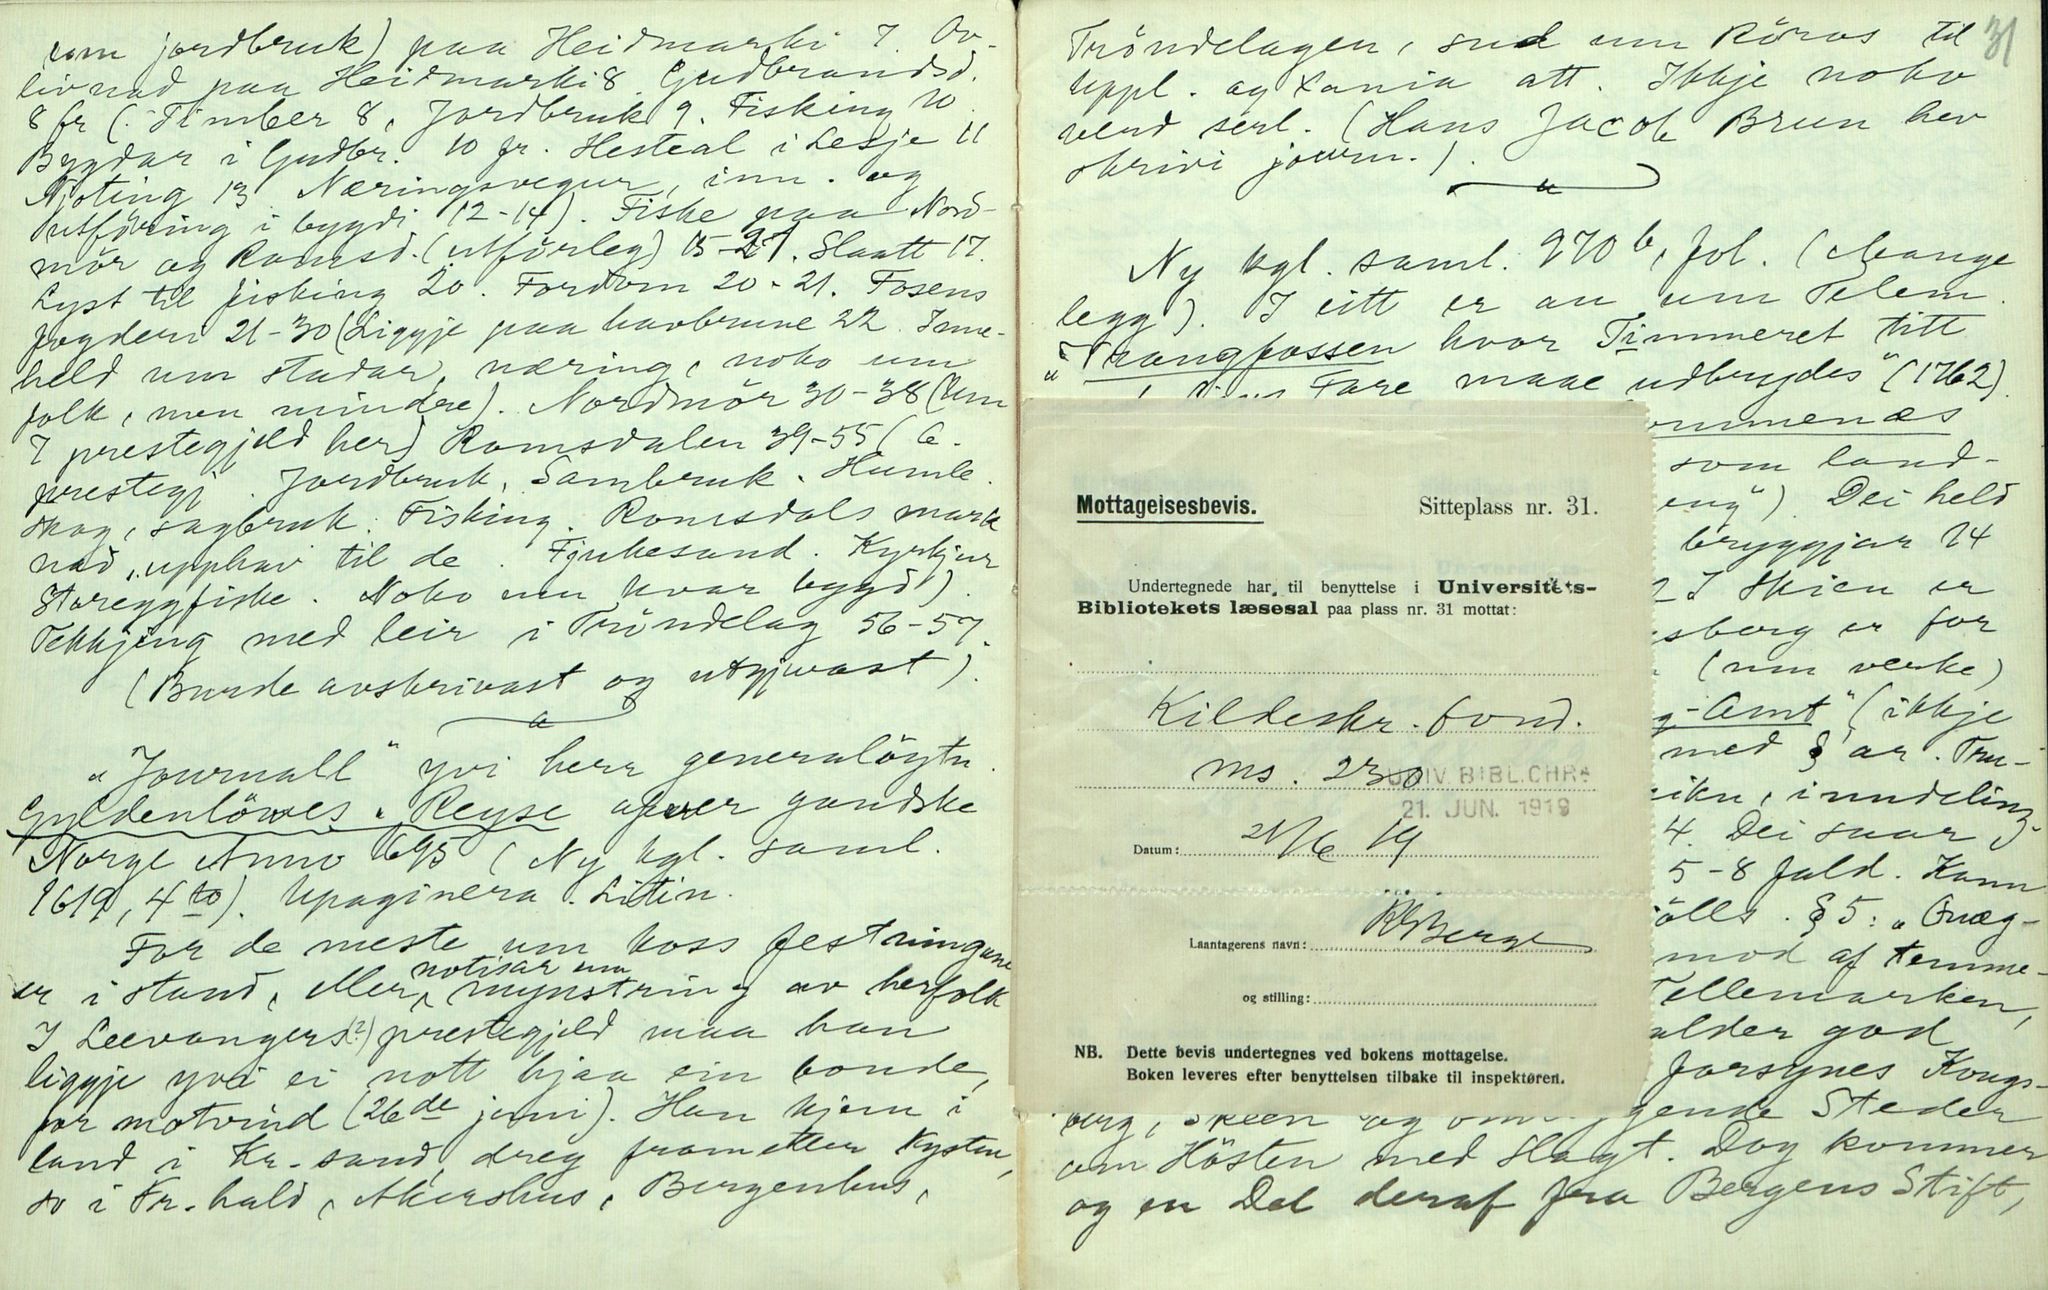 som jordbruk) paa Heidmarki 7. Av-
livnad paa Heidmarki 8. Gudbrandsd.
8 fr (. Timber 8, Jordbruk 9. Fisking 10
Bygdar i Gudbr. 10 fr. Hesteal i Lesje 11
Njoting 13. Næringsvegur, inn. og
utföring i bygdi 12-14). Fiske paa Nord-
mör og Romsd. (utförleg) 15-27. Slaatt 17.
Lyst til fisking 20. Fordom 20-21. Fosens
fogderi 21-30 (Liggje paa havbrune 22. Inne-
held um stadar, næring, noko um
folk, men mindre). Nordmör 30-38 (Um
7 prestegjeld her) Romsdalen 39-55 (6.
prestegj. Jordbruk, Sambruk. Humle.
skog, sagbruk. Fisking. Romsdals mark
nad, upphav til de. Fjukesund. Kyrkjur
Storeggfiske. Noko um kvar bygd).
Tekkjing med leir i Tröndelag 56-57.
(Burde avskrivast og utgjevast).
"Journall" yvi herr generalöytn.
Gyldenlöwes "Reyse ofver gandske
Norge Anno 1695 (Ny kgl. saml.
1619, 4to). Upaginera. Litin.
For de meste um koss festningane
er i stand, eller notisar um mynstring av herfolk
I Leevangers(?) prestegjeld maa han
liggje yvi ei nott hjaa ein bonde,
for motvind (26de juni). Han kjem i
land i Kr.sand, dreg frametter Kysten,
so i Fr.hald, Akershus, Bergenhus,
31
Tröndelagen, sud um Röros til
Uppl. og Xania att. Ikkje noko
verd serl. (Hans Jacob Brun hev
skrivi journ.).
Ny kgl. saml. 970 b, fol. (Mange
legg). I eitt er au um Telem.
"Trangfossen hvor Timmeret titt
Fare maae udbrydes" (1762).
ommenæs
som land-
eng"). Dei held
bryggjar 24
2 I Skien er
sberg er for
(um verke)
g-Amt" (ikkje
med § ar. Tru-
ikn, inndeling
4. Dei saar
5-8 fald. Kann
ölls. § 5: "Qvæg-
mod af temme-
Tellemarken,
alder god
forsynes Kongs-
berg, Skeen og omliggende Steder
om Hösten med Slagt. Dog kommer
og en Del deraf fra Bergens Stift,
Mottagelsesbevis. Sitteplass nr. 31.
Undertegnede har til benyttelse i Universitets-
Bibliotekets læsesal paa plass nr. 31 mottat:
Kildeskr. fond.
ms. 230
UNIV. BIBL. CHRA
21. JUN. 1919
Datum: 21/6 19
Laantagerens navn: RBerge
og stilling:
NB. Dette bevis undertegnes ved bokens mottagelse.
Boken leveres efter benyttelsen tilbake til inspektøren.